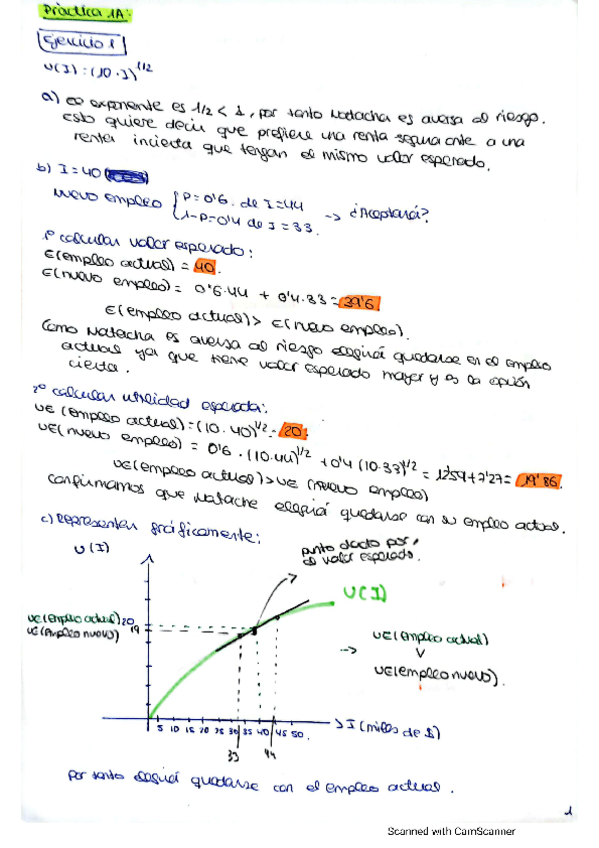 Práctica 1A:
Ejercicio 1
U(I) = (10·I)^1/2
a) es exponente es 1/2 < 1, por tanto Natacha es aversa al riesgo.
Esto quiere decir que prefiere una renta segura ante a una
renta incierta que tengan el mismo valor esperado.
b) I = 40
Nuevo empleo { P=0'6. de I=44
1-P=0'4 de I=33. -> ¿Aceptará?
1º calcular valor esperado:
E(empleo actual) = 40.
E(nuevo empleo) = 0'6·44 + 0'4·33 = 39'6
E(empleo actual) > E(nuevo empleo).
Como Natacha es aversa al riesgo elegirá quedarse en el empleo
actual ya que tiene valor esperado mayor y es la opción
cierta.
2º calcular utilidad esperada:
UE(empleo actual) = (10·40)^1/2 = 20.
UE(nuevo empleo) = 0'6·(10·44)^1/2 + 0'4(10·33)^1/2 = 12'59+7'27 = 19'86.
UE(empleo actual) > UE(nuevo empleo)
Confirmamos que Natacha elegirá quedarse con su empleo actual.
c) Representen gráficamente:
U(I)
punto dado por
el valor esperado.
U(I)
UE(empleo actual) 20
UE(empleo nuevo) 19
--> UE(empleo actual)
V
UE(empleo nuevo).
5 10 15 20 25 30 35 40 45 50.
I (miles de $)
33 44
Por tanto elegirá quedarse con el empleo actual.
1
Scanned with CamScanner